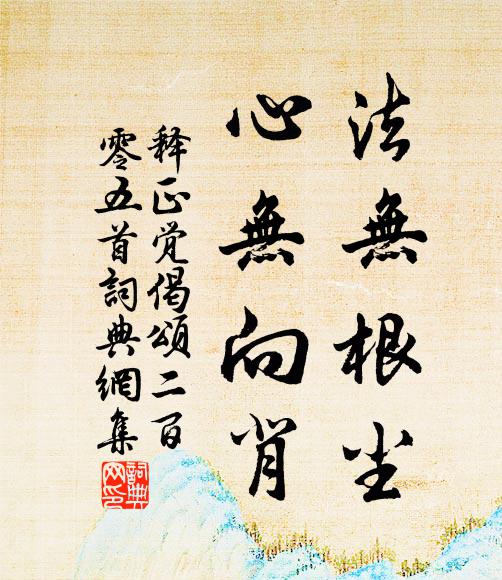 法無根尘
心無向背
释正觉偈頌二百
零五首詞典網集
詞典网印